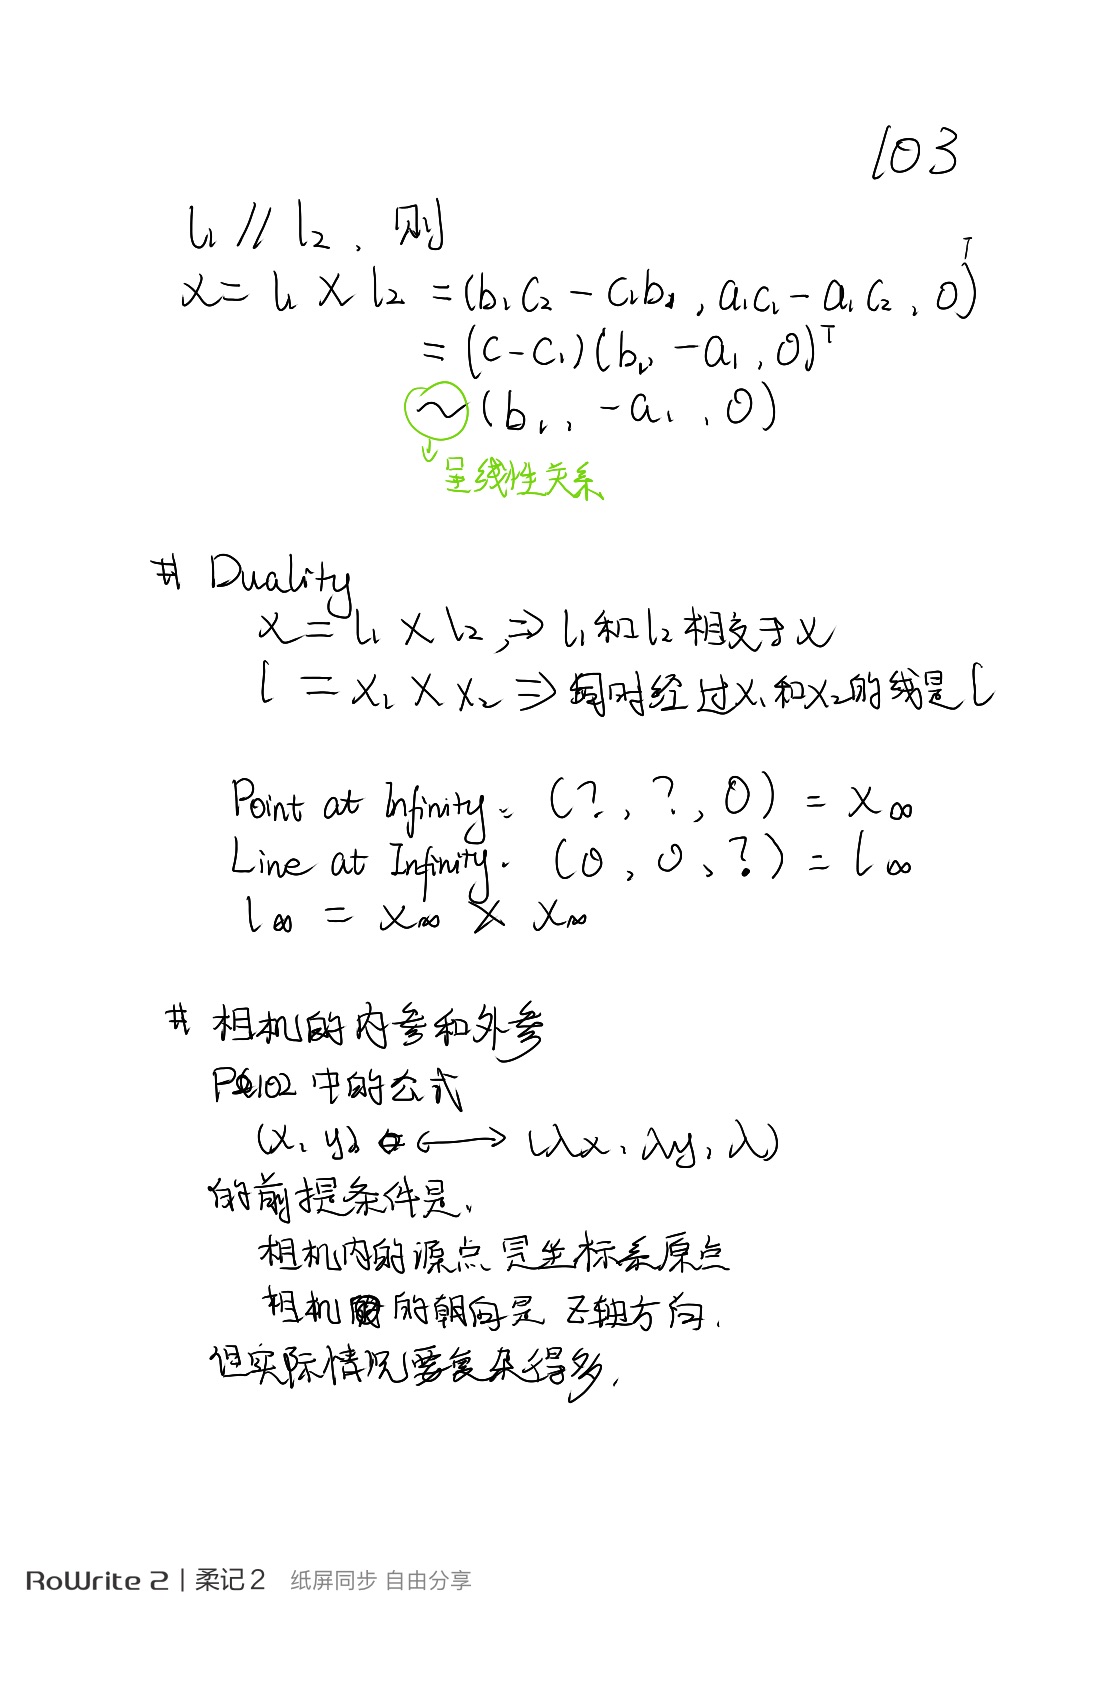 103
l₁ // l₂, 则
x = l₁ × l₂ = (b₁c₂ - c₁b₁, a₁c₁ - a₁c₂, 0)ᵀ
= (c - c₁)(b₁, -a₁, 0)ᵀ
~ (b₁, -a₁, 0)
呈线性关系
# Duality
x = l₁ × l₂, ⇒ l₁和l₂相交于x
l = x₁ × x₂ ⇒ 同时经过x₁和x₂的线是l
Point at Infinity: (?, ?, 0) = x∞
Line at Infinity: (0, 0, ?) = l∞
l∞ = x∞ × x∞
# 相机的内参和外参
P102 中的公式
(x, y) ⟷ (λx, λy, λ)
的前提条件是,
相机内的源点是坐标系原点
相机的朝向是 Z轴方向.
但实际情况要复杂得多.
RoWrite 2 | 柔记2 纸屏同步 自由分享